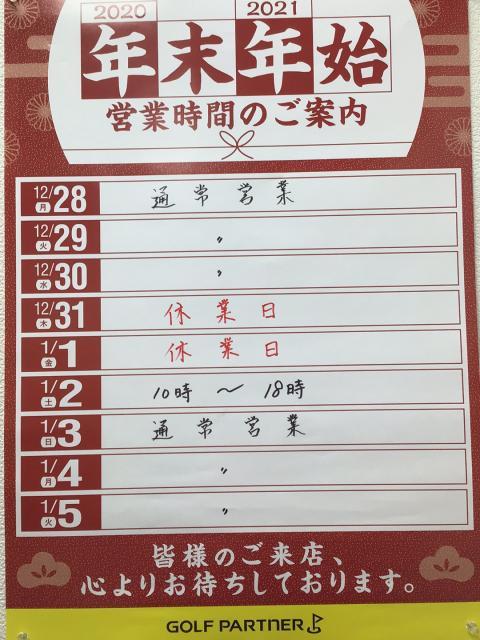 2020 2021
年末年始
営業時間のご案内
12/28 月 通常営業
12/29 火 〃
12/30 水 〃
12/31 木 休業日
1/1 金 休業日
1/2 土 10時〜18時
1/3 日 通常営業
1/4 月 〃
1/5 火 〃
皆様のご来店、
心よりお待ちしております。
GOLF PARTNER